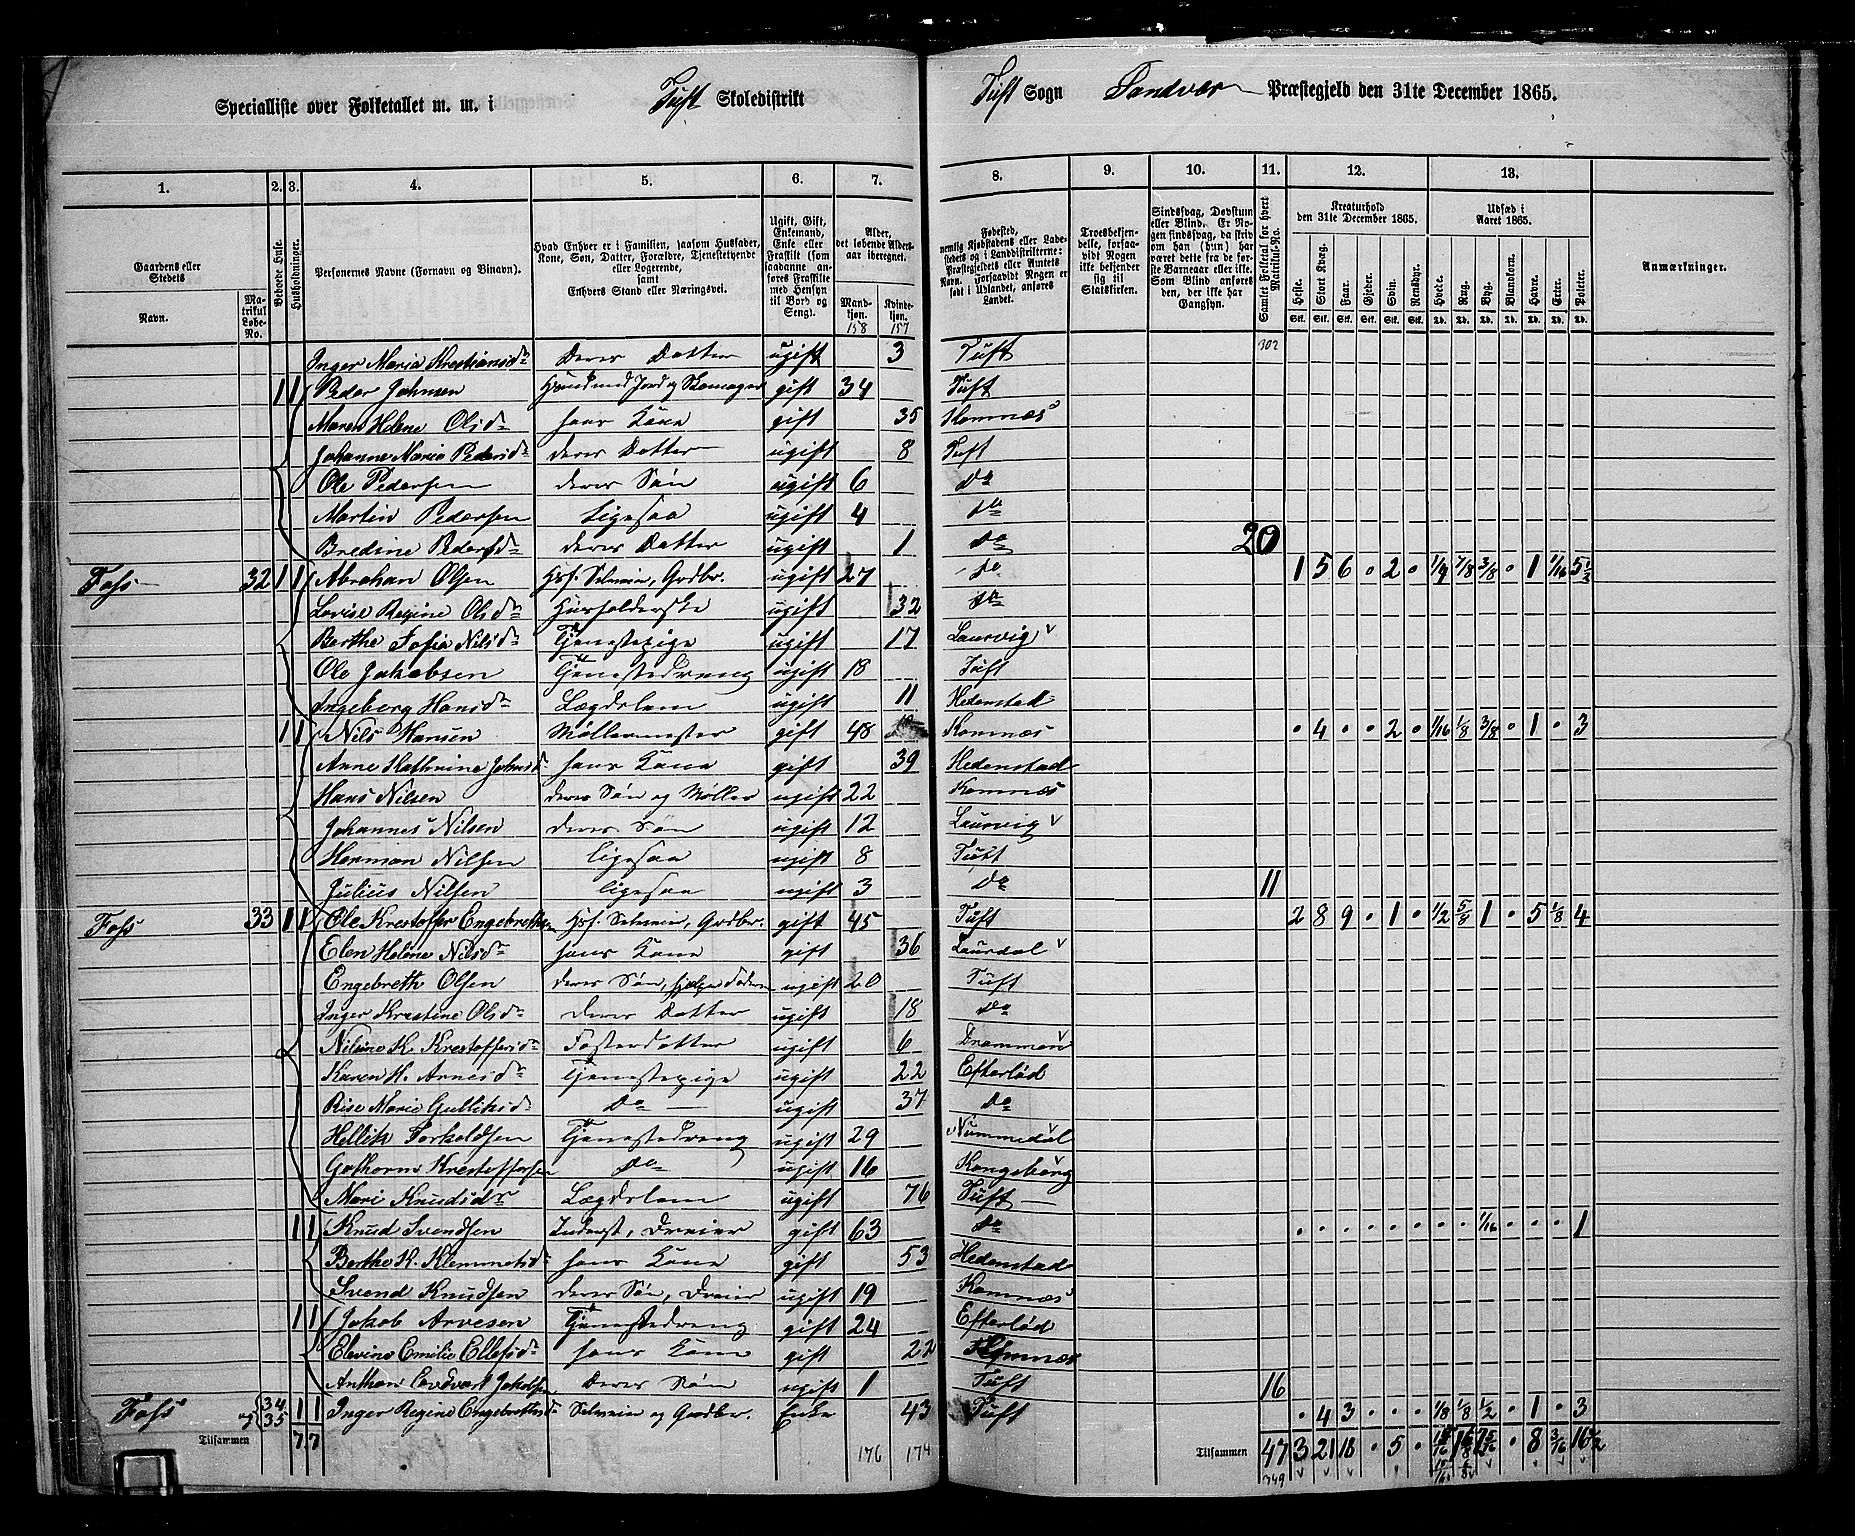 Specialliste over Folketallet m. m. i Tuft Skoledistrikt Tuft Sogn Sandsvær Præstegjeld den 31te December 1865.
1. 2. 3. 4. 5. 6. 7. 8. 9. 10. 11. 12. 13.
Gaardens eller Stedets
Navn.
Matrikul Løbe-No.
Beboede Huse.
Husholdninger.
Personernes Navne (Fornavn og Tilnavn).
Hvad Enhver er i Familien, saasom Husfader, Kone, Søn, Datter, Forældre, Tjenestetyende eller Logerende, samt Enhvers Stand eller Næringsvei.
Ugift, Gift, Enkemand, Enke eller Fraskilt (som saadanne anføres Fraskilte med Hensyn til Bord og Seng).
Alder, det løbende Aldersaar iberegnet.
Mandkjøn. 158 Kvindekjøn. 157
Fødested,
Troesbekjendelse, forsaavidt Nogen ikke bekjender sig til Statskirken.
Sindssvag, Døvstum eller Blind.
Samlet Folketal for hvert Matrikul-No.
Kreaturhold den 31te December 1865.
Heste. Stort Kvæg. Faar. Gjeder. Svin. Rensdyr.
Udsæd i Aaret 1865.
Hvede. Rug. Byg. Blandkorn. Havre. Erter. Poteter.
Anmærkninger.
Inger Maria Kristiansdr deres Datter ugift 3 Tuft 302
1 1 Peder Johnsen Husmd med Jord og Skomager gift 34 Tuft
Maren Helene Olsdr hans Kone gift 35 Komnæs
Johanne Maria Pedersdr deres Datter ugift 8 Tuft
Ole Pedersen deres Søn ugift 6 do
Martin Pedersen Ligesaa ugift 4 do
Bredine Pedersdr deres Datter ugift 1 do 20
Foss 32 1 1 Abraham Olsen Hsf. Selveier, Grdbr. ugift 27 do 1 5 6 • 2 • 1/9 7/8 3/8 • 1 1/16 5 1/2
Lovise Regine Olsdr Husholderske ugift 32 do
Berthe Sofia Nilsdr Tjenestepige ugift 17 Laurvig
Ole Jakobsen Tjenestedreng ugift 18 Tuft
Ingeborg Hansdr Lægdslem ugift 11 Hedenstad
1 1 Nils Hansen Møllermester gift 48 Komnæs • 4 • • 2 • 1/16 1/8 3/8 • 1 • 3
Anne Kathrine Johnsd hans Kone gift 39 Hedenstad
Hans Nilsen deres Søn og Møller ugift 22 Komnæs
Johannes Nilsen deres Søn ugift 12 Laurvig
Herman Nilsen ligesaa ugift 8 Tuft
Julius Nilsen ligesaa ugift 3 do 11
Foss 33 1 1 Ole Krestoffer Engebrethsen Hsf. Selveier, Grdbr. gift 45 Tuft 2 8 9 • 1 • 1/2 5/8 1 • 5 1/8 4
Elen Helene Nilsdr hans Kone gift 36 Laurdal
Engebreth Olsen deres Søn, hjelper Faderen ugift 20 Tuft
Inger Krestine Olsdr deres Datter ugift 18 do
Niline K. Krestoffersdr Fosterdatter ugift 6 Drammen
Karen H. Arnesdr Tjenestepige ugift 22 Efterlød
Rise Marie Gulliksdr do ugift 37 do
Hellik Torkeldsen Tjenestedreng ugift 29 Nummedal
Gothorm Krestoffersen do ugift 16 Kongsberg
Mari Knudsdr Lægdslem ugift 76 Tuft
1 1 Knud Svendsen Inderst, Dreier gift 63 do • • • • • • • • 1/16 • • • 1
Berthe K. Klemmetsdr hans Kone gift 53 Hedenstad
Svend Knudsen deres Søn, Dreier ugift 19 Komnæs
1 1 Jakob Arvesen Tjenestedreng gift 24 Efterlød
Elevine Emilie Ellefsdr hans Kone gift 22 Komnæs
Anthon Edvart Jakobsen deres Søn ugift 1 Tuft 16
Foss og 34 35 1 1 Inger Regine Engebrethsdr Selveier og Grdbr. Enke 43 Tuft • 4 3 • • • 1/8 1/8 1/2 • 1 • 3
Tilsammen 7 7 176 174 Tilsammen 47 3 21 18 • 5 • • 8 3/16 16 1/2
349